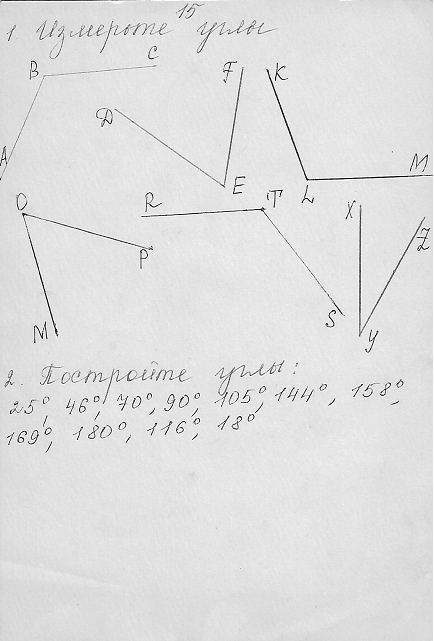 15
1. Измерьте углы
B C F K
D
A E L M
O R T X
P Z
M S Y
2. Постройте углы:
25°, 46°, 70°, 90°, 105°, 144°, 158°,
169°, 180°, 116°, 18°